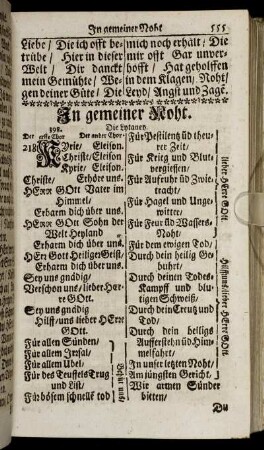 In gemeiner Noht 555
Liebe/ Die ich offt be-
trübe/ Hier in dieser
Welt/ Dir danckt
mein Gemühte/ We-
gen deiner Güte/ Die
mich noch erhält; Die
mir offt Gar unver-
hofft/ Hat geholffen
in dem Klagen/ Noht/
Leyd/ Angst und Zage.
In gemeiner Noht.
398. Die Lytaney.
Der erste Chor Der ander Chor.
218 Kyrie/ Eleison.
Christe/ Eleison
Kyrie/ Eleison.
Christe/ Erhöre uns.
HErr GOtt Vater im
Himmel/
Erbarm dich über uns.
HErr GOtt Sohn der
Welt Heyland
Erbarm dich über uns.
HErr Gott Heiliger Geist/
Erbarm dich über uns.
Sey uns gnädig/
Verschon uns/ lieber Her-
re GOtt.
Sey uns gnädig
Hilff/ uns lieber HErre
GOtt.
Für allen Sünden/
Für allem Irrsal/
Für allem Ubel/
Für des Teuffels Trug
und List/
Für bösem schnellē tod
Behüt uns
Für Pestilentz uñ theu-
rer Zeit/
Für Krieg und Blut-
vergiessen/
Für Aufruhr uñ Zwie-
tracht/
Für Hagel und Unge-
witter/
Für Feur uñ Wassers-
Noht/
Für dem ewigen Tod/
Durch dein heilig Ge-
buhrt/
Durch deinen Todes-
Kampff und blu-
tigen Schweiß/
Durch dein Creutz und
Tod/
Durch dein heiligs
Aufferstehn uñ Him-
melfahrt/
In unser letzten Noht/
Am jüngsten Gericht.
Wir armen Sünder
bitten/
lieber HErre GOtt
Hilff uns lieber HErre GOtt.
Du